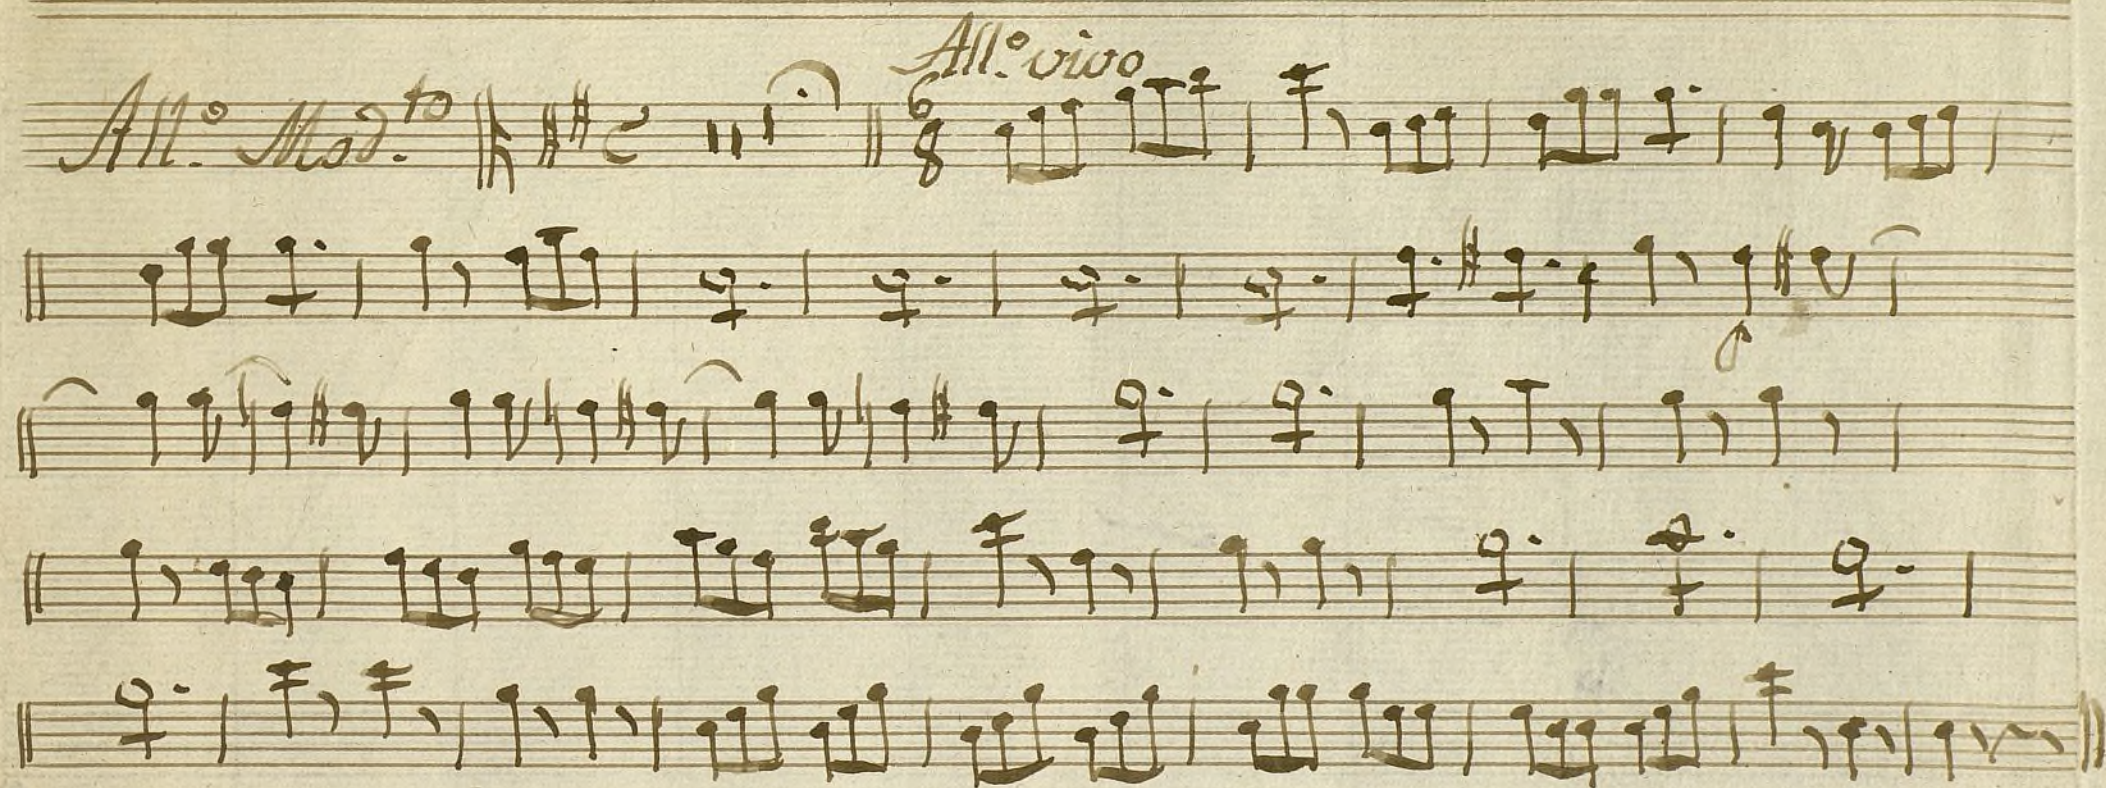 All.º vivo
All.º Mod.to 6 8
p